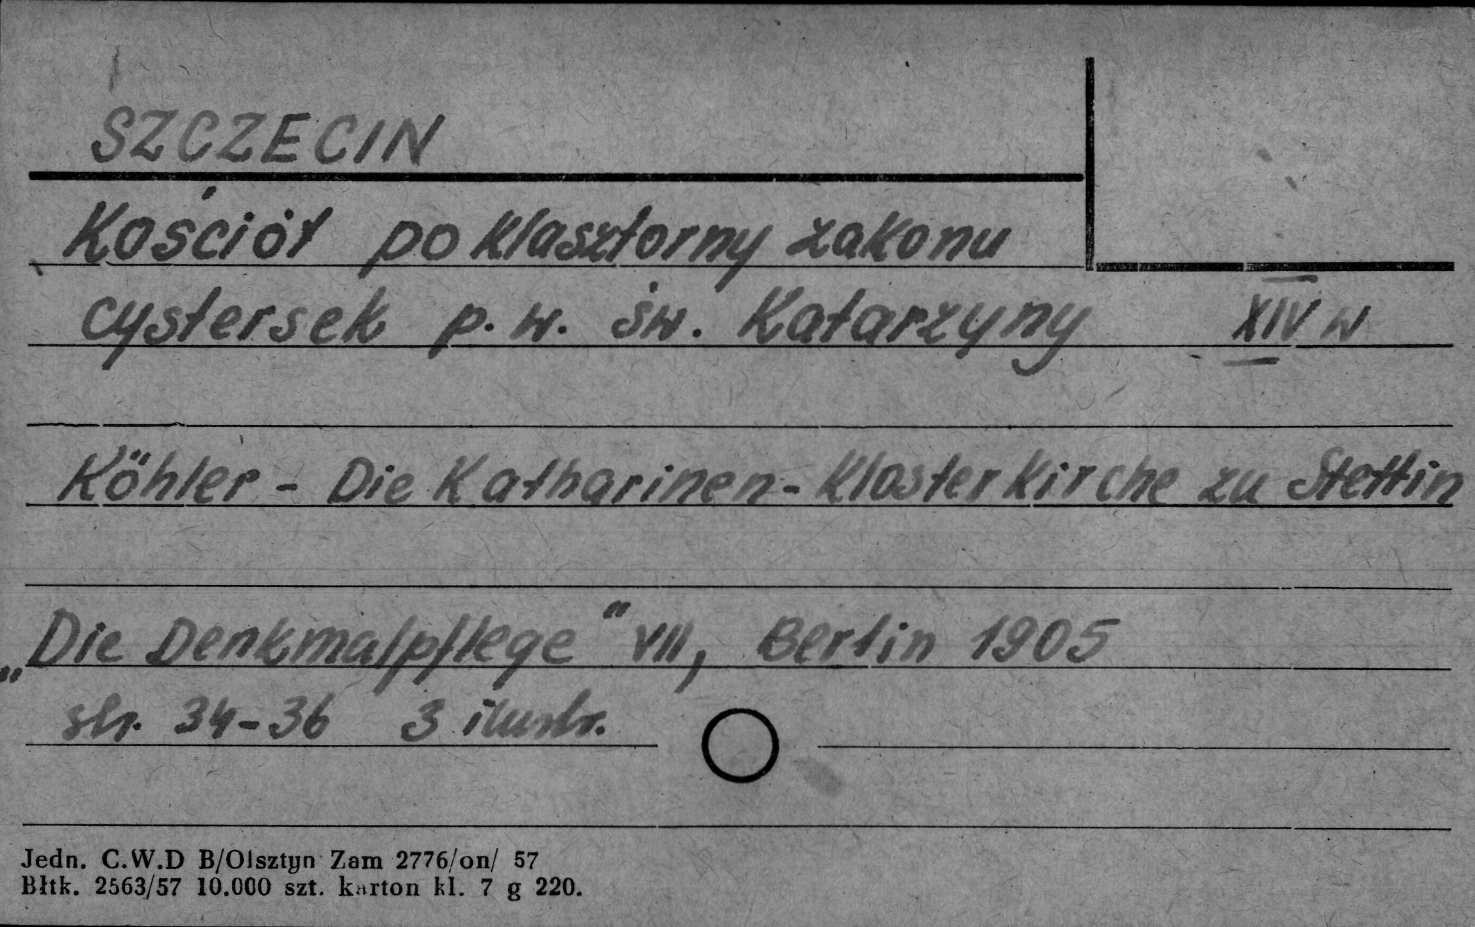 SZCZECIN
Kościół po klasztorny zakonu
cystersek p.w. św. Katarzyny XIV w
Köhler - Die Katharinen-Klosterkirche zu Stettin
„Die Denkmalpflege" VII, Berlin 1905
str. 34-36 3 ilustr.
Jedn. C.W.D B/Olsztyn Zam 2776/on/ 57
Błtk. 2563/57 10.000 szt. karton kl. 7 g 220.